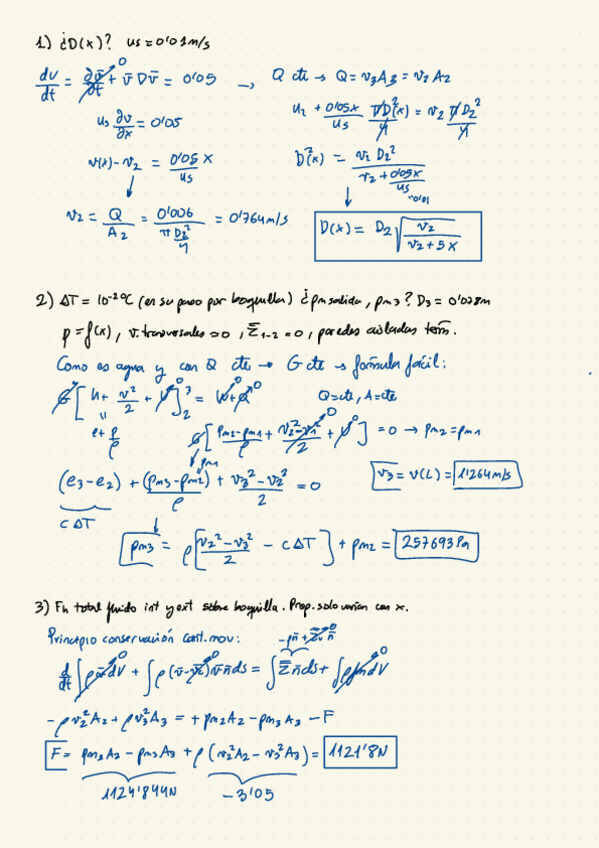 1) ¿D(x)? us = 0'01 m/s
dv/dt = ∂v̄/∂t + v̄ Dv̄ = 0'05 → Q cte → Q = v3 A3 = v2 A2
us ∂v/∂x = 0'05
u2 + 0'05x/us ΠD²(x)/4 = v2 ΠD2²/4
v(x) - v2 = 0'05 x/us
D²(x) = v2 D2² / v2 + 0'05x/us
0'01
v2 = Q/A2 = 0'006 / π D2²/4 = 0'764 m/s
D(x) = D2 √(v2 / v2 + 5x)
2) ΔT = 10⁻² ºC (en su paso por boquilla) ¿pm salida, pm3? D3 = 0'078m
p = f(x), v. transversales = 0, Σ̿1-2 = 0, paredes aisladas térm.
Como es agua y con Q cte → G cte → fórmula fácil:
G [h + v²/2 + U]₂³ = W + Q
Q = cte, A = cte
e + p/ρ
G [pm2 - pm1/ρ + v2² - v1²/2 + U] = 0 → pm2 = pm1
pm1
(e3 - e2) + (pm3 - pm2)/ρ + v3² - v2²/2 = 0
v3 = v(L) = 1'264 m/s
c ΔT
pm3 = ρ [v2² - v3²/2 - cΔT] + pm2 = 257693 Pa
3) Fh total fluido int y ext sobre boquilla. Prop. solo varían con x.
Principio conservación cant. mov:
-pn̄ + Σ̿v n̄
d/dt ∫ρv̄dV + ∫ρ(v̄ - v̄c)v̄n̄ds = ∫Σ̿n̄ds + ∫ρfmdV
-ρv2²A2 + ρv3²A3 = + pm2A2 - pm3A3 - F
F = pm2A2 - pm3A3 + ρ(v2²A2 - v3²A3) = 1121'8N
1124'844N
-3'05